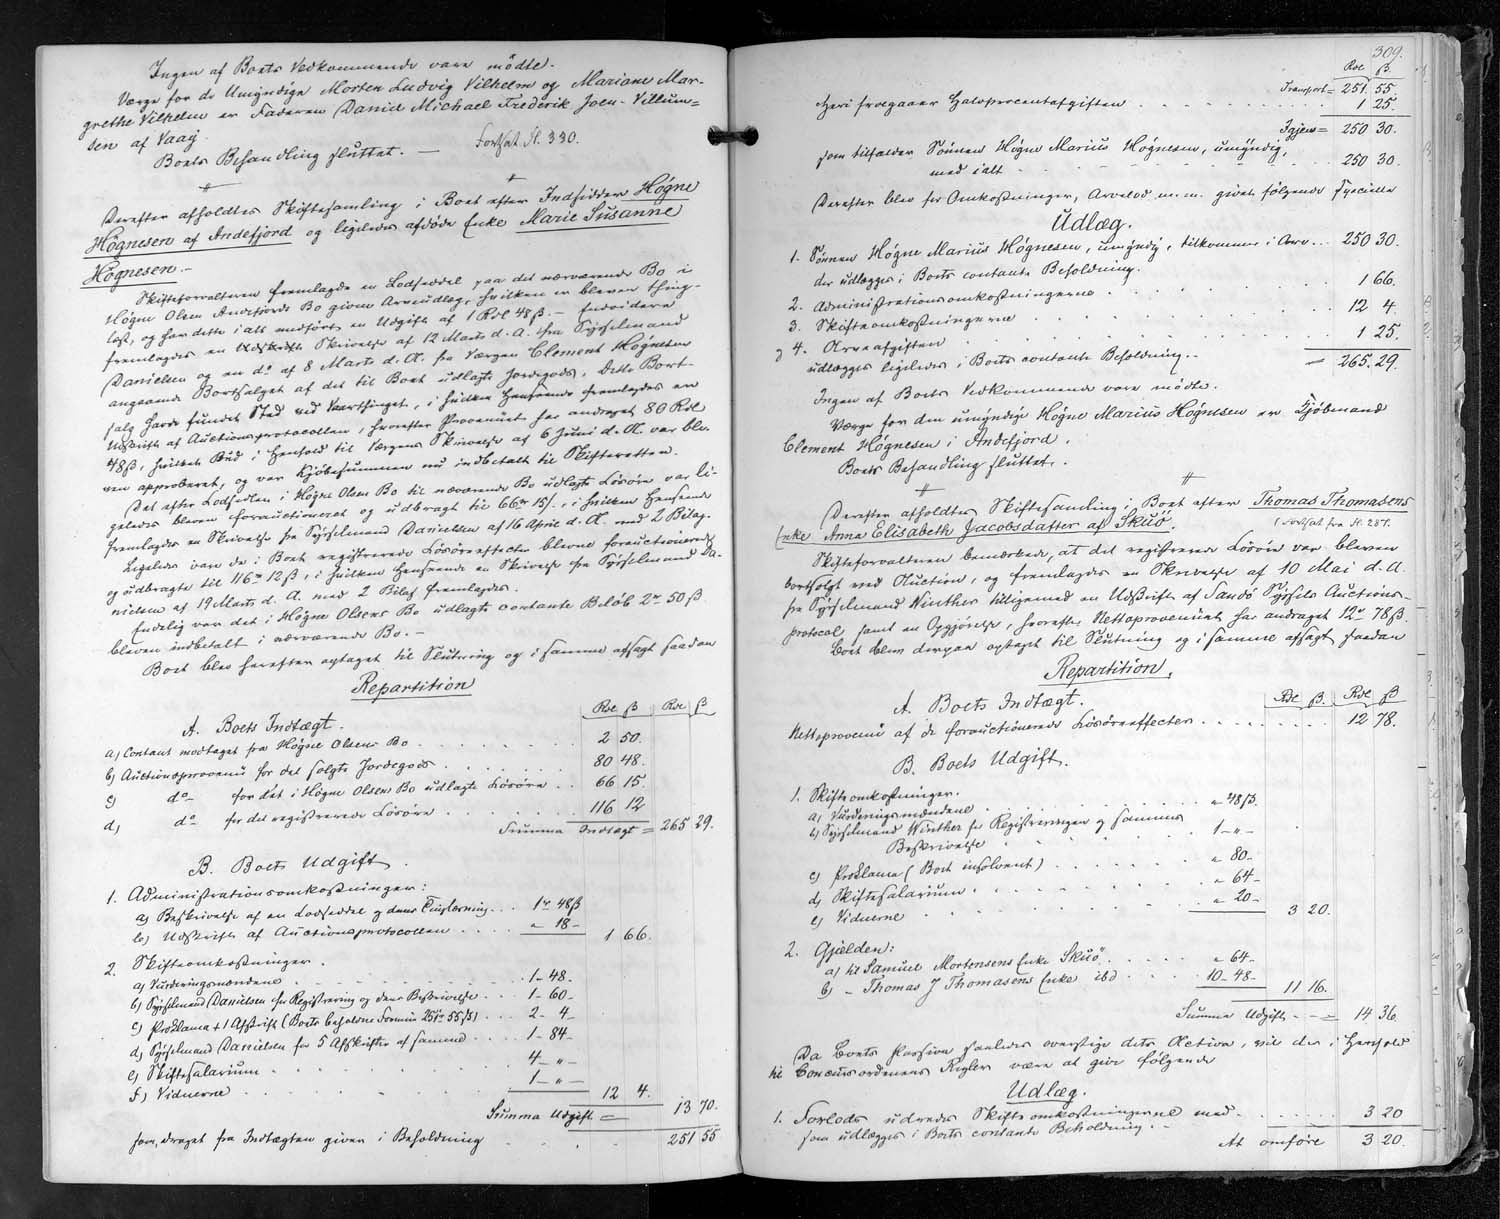 Ingen af Boets Vedkommende vare mödte.
Værge for de Umyndige Morten Ludvig Vilhelm og Mariane Mar-
grethe Vilhelm er Faderen Daniel Michael Frederik Joen-Villum-
sen af Vaag.
Boets Behandling sluttet. — Fortsat Fl. 330.
Derefter afholdtes Skiftesamling i Boet efter Indsidder Högne
Högnesen af Andefjord og ligeledes afdøde Enke Marie Susanne
Högnesen.—
Skifteforvalteren fremlagde en Lodseddel paa det nærværende Bo i
Högne Olsen Andefjords Bo givne Arveudlæg, hvilken er bleven thing-
læst, og har dette i alt medført en Udgift af 1 Rdl 48 β. — Endvidere
fremlagdes en Skrivelse af 12 Marts d. A. fra Sysselmand
Danielsen og en do af 8 Marts d. A. fra Værgen Clement Högnesen
angaaende Bortsalget af det til Boet udlagte Jordegods. Dette Bort-
salg havde fundet Sted ved Vaarthinget, i hvilken Henseende fremlagdes en
Udskrift af Auctionsprotocollen, hvorefter Provenuet har andraget 80 Rdl
48 β, hvilket Bud i Henhold til Skrivelse af 6 Juni d. A. var ble-
ven approberet, og var Kjöbesummen nu indbetalt til Skifteretten.
Det efter Lodsedlen i Högne Olsen Bo til nærværende Bo udlagte Lösöre var li-
geledes bleven forauctioneret og udbragt til 66 rd 15 β, i hvilken Henseende
fremlagdes en Skrivelse fra Sysselmand Danielsen af 16 April d. A. med 2 Bilag.
Ligeledes vare de i Boet registrerede Lösöreeffecter blevne forauctionerede
og udbragte til 116 rd 12 β, i hvilken Henseende en Skrivelse fra Sysselmand Da-
nielsen af 19 Marts d. A. med 2 Bilag fremlagdes.
Endelig var det i Högne Olsens Bo udlagte contante Belöb 2 rd 50 β
bleven indbetalt i nærværende Bo. —
Boet blev herefter optaget til Slutning og i samme afsagt saadan
Repartition
A. Boets Indtægt. Rdl β Rdl β
a) Contant modtaget fra Högne Olsens Bo . . . 2 50.
b) Auctionsprovenu for det solgte Jordegods . . . 80 48.
c) do for det i Högne Olsens Bo udlagte Lösöre . . 66 15.
d) do for det registrerede Lösöre . . . 116 12
Summa Indtægt = 265 29.
B. Boets Udgift.
1. Administrationsomkostninger:
a) Beskrivelse af en Lodseddel og dens Tinglæsning . . . 1 rd 48 β
b) Udskrift af Auctionsprotocollen . . . . " 18 — 1 66.
2. Skifteomkostninger.
a) Vurderingsmændene . . . 1 — 48.
b) Sysselmand Danielsen for Registrering og dens Beskrivelse . . . 1 — 60 —
c) Proklama + 1 Afskrift (Boets beholdne Formue 251 rd 55 β) . . . 2 — 4 —
d) Sysselmand Danielsen for 5 Afskrifter af samme . . . 1 — 84 —
e) Skiftesalarium . . . 4 — " —
f) Vidnerne . . . 1 — " — 12 4.
Summa Udgift = 13 70.
som, draget fra Indtægten giver i Beholdning . . . 251 55
309.
Rdl β
Transport = 251. 55.
Heri fragaaer Halvprocentafgiften . . . 1 25.
Igjen = 250 30.
som tilfalder Sönnen Högne Marius Högnesen, umyndig,
med ialt . . . 250 30.
Derefter blev for Omkostninger, Arvelod m.m. givet følgende specielle
Udlæg.
1. Sönnen Högne Marius Högnesen, umyndig, tilkommer i Arv . . . 250 30.
der udlægges i Boets contante Beholdning.
2. Administrationsomkostningerne . . . 1 66.
3. Skifteomkostningerne . . . 12 4
og 4. Arveafgiften . . . 1 25.
udlægges ligeledes i Boets contante Beholdning. — = 265. 29.
Ingen af Boets Vedkommende vare mödte.
Værge for den umyndige Högne Marius Högnesen er Kjöbmand
Clement Högnesen i Andefjord.
Boets Behandling sluttet.
Derefter afholdtes Skiftesamling i Boet efter Thomas Thomasens
Enke Anna Elisabeth Jacobsdatter af Skuö. (Fortsat fra Fl. 281.
Skifteforvalteren bemærkede, at det registrerede Lösöre var bleven
bortsolgt ved Auction, og fremlagdes en Skrivelse af 10 Mai d. A.
fra Sysselmand Winther tilligemed en Udskrift af Sandö Syssels Auctions-
protocol samt en Opgjörelse, hvorefter Nettoprovenuet har andraget 12 rd 78 β.
Boet blev derpaa optaget til Slutning og i samme afsagt saadan
Repartition.
A. Boets Indtægt. Rdl β. Rdl β
Nettoprovenu af de forauctionerede Lösöreeffecter . . . 12 78.
B. Boets Udgift.
1. Skifteomkostninger.
a) Vurderingsmændene . . . " 48 β.
b) Sysselmand Winther for Registreringen og sammes
Beskrivelse . . . 1 — " —
c) Proklama (Boet insolvent) . . . " 80 —
d) Skiftesalarium . . . " 64 —
e) Vidnerne . . . " 20 — 3 20.
2. Gjælden:
a) til Samuel Mortensens Enke Skuö . . . " 64 —
b) — Thomas J Thomasens Enke ibd . . . 10 — 48 — 11 16.
Summa Udgift — = 14 36.
Da Boets Passiva saaledes overstige dets Activa, vil der i Henhold
til Concursordenens Regler være at give følgende
Udlæg.
1. Forlods udredes Skifteomkostningerne med . . . 3 20
som udlægges i Boets contante Beholdning. —
At omföre 3 20.